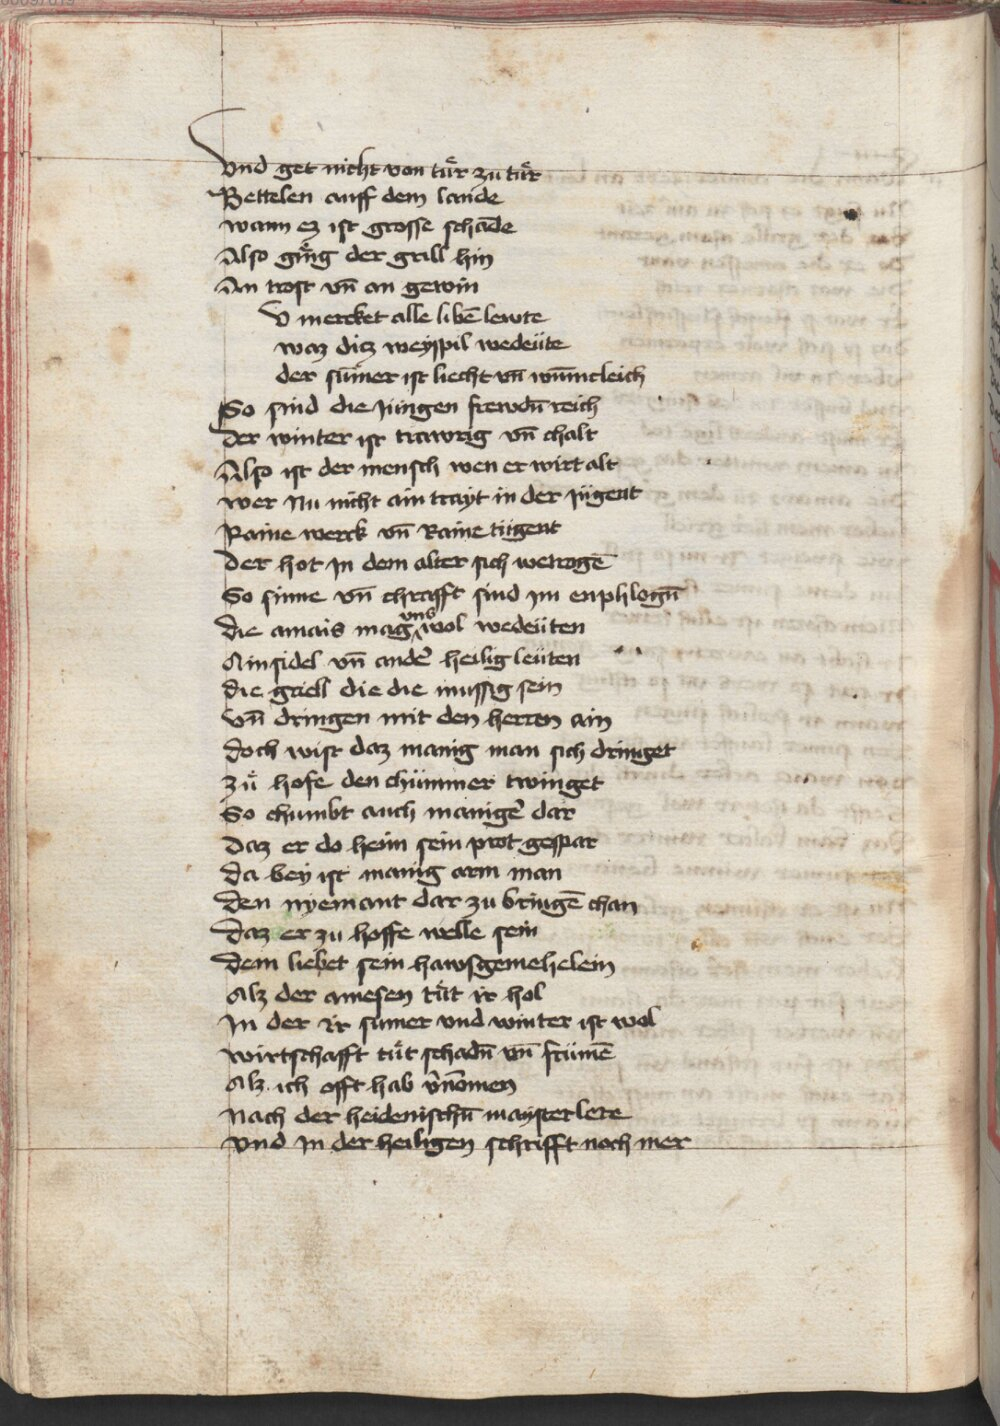 Vnd get nicht von tür zu tür
Bettelen auff dem lande
wann ez ist grosse schāde
Also ging der grill hin
An trost vn̄ an gewin
V mercket alle libē lewte
waz ditz weyspil wedeüte
der sum̄er ist liecht vn̄ wūnicleich
So sind die Jüngen frewdn̄ reich
der winter ist trawrig vn̄ chalt
Also ist der mensch wen er wirt alt
wer Nu nicht ain trayt in der Jügent
Raine werck vn̄ Raine tügent
der hot In dem alter sich wetrogē
So sinne vn̄ chrafft sind im enphlogn̄
die amais mag vns wol wedeüten
Ainsidel vn̄ ander heilig leüten
die griell die die mussig sein
Vn̄ dringen mit den herren ain
doch wist daz manig man sich dringet
zü hofe den chümmer twinget
So chumbt auch maniger dar
daz er do heim sein prot gespar
da bey ist manig arm man
den nyemant dar zu bringē chan
daz er zu hoffe welle sein
dem liebet sein hawsgemehelein
Alz der amesen tüt ir hol
In der ir sumer vnd winter ist wol
wirtschafft tüt schadn̄ vn̄ frümē
Alz ich offt hab v̄nōmen
Nach der heidenischn̄ mayster lere
Vnd In der heiligen schrifft noch mer